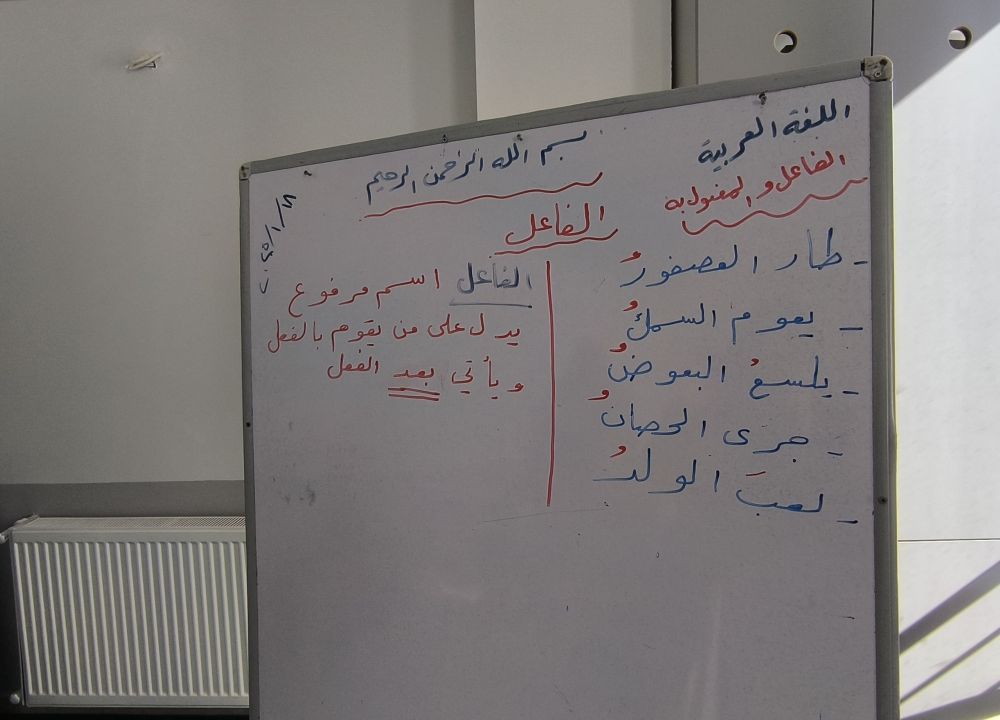 اللغة العربية
بسم الله الرحمن الرحيم
الفاعل و المفعول به
الفاعل
- طار العصفورُ
- يعوم السمكُ
- يلسعُ البعوضُ
- جرى الحصانُ
- لعبَ الولدُ
الفاعل اسم مرفوع
يدل على من يقوم بالفعل
و يأتي بعد الفعل